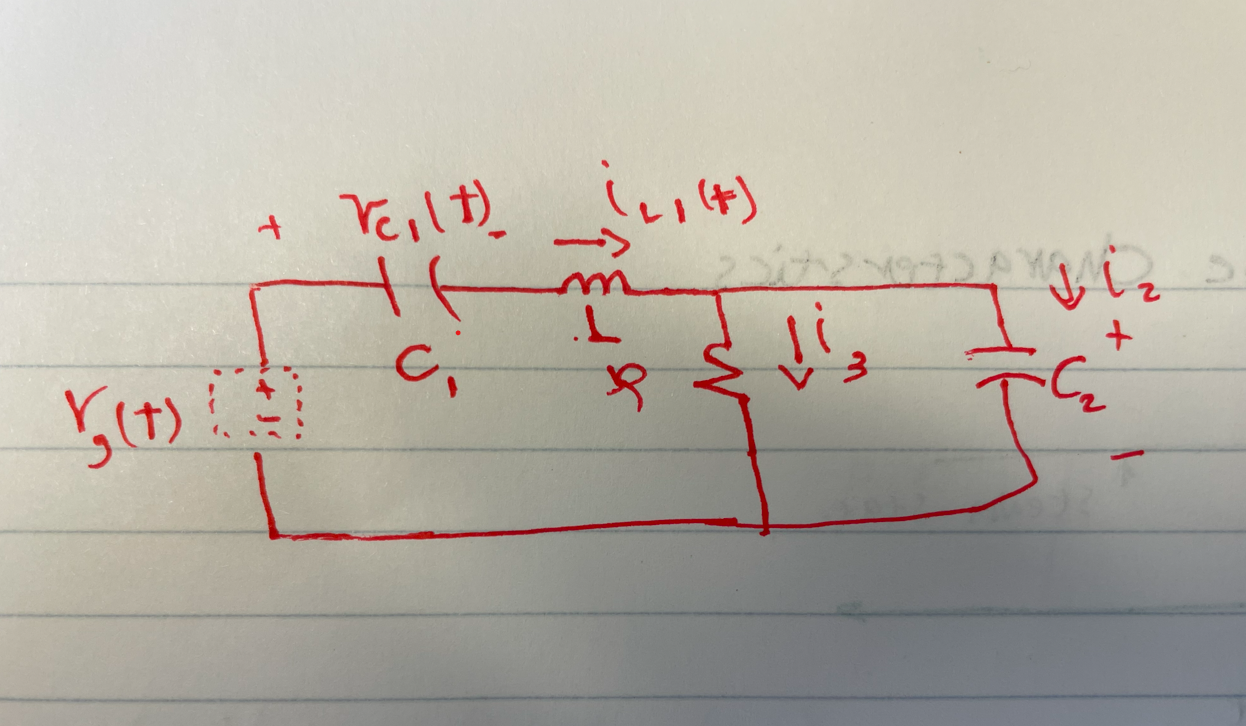 + v_c1(t) - i_L1(t)
i_2
L i_3 +
C_1 R C_2
+
-
v_g(t)
-